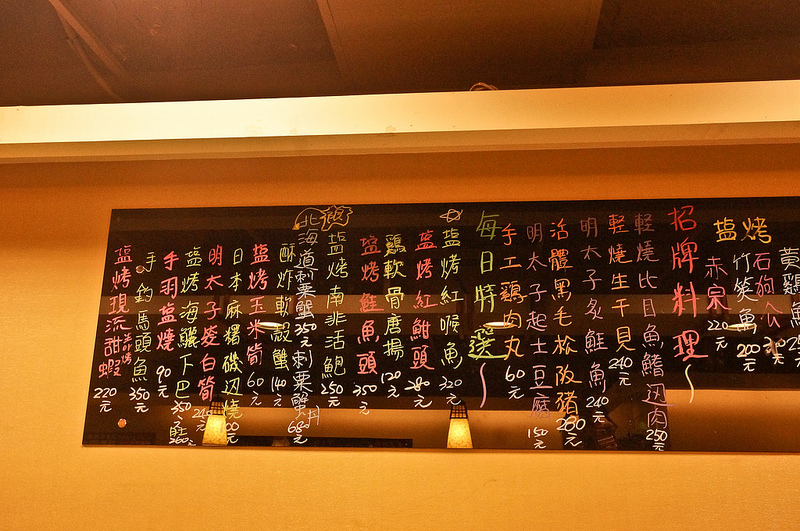 黃雞魚
石狗公
竹筴魚 200元
赤宗 220元
塩烤
招牌料理~
輕燒比目魚鰭边肉 250元
輕燒生干貝 240元
明太子炙鮭魚 240元
活體黑毛松阪豬 260元
明太子起士豆腐 150元
手工鷄肉丸 60元
每日特選~
塩烤紅喉魚 320元
塩烤紅魽頭 元
鷄軟骨唐揚 120元
塩烤鮭魚頭 350元
塩烤南非活鮑 250元
北海道刺粟蟹 350元 刺粟蟹丼 680元
酥炸軟殼蟹 140元
塩烤玉米筍 60元
日本麻糬磯辺燒 元
明太子筊白筍 元
塩烤海驪下巴 350元
手羽塩燒 90元
手釣馬頭魚 350元
塩烤現流甜蝦 220元